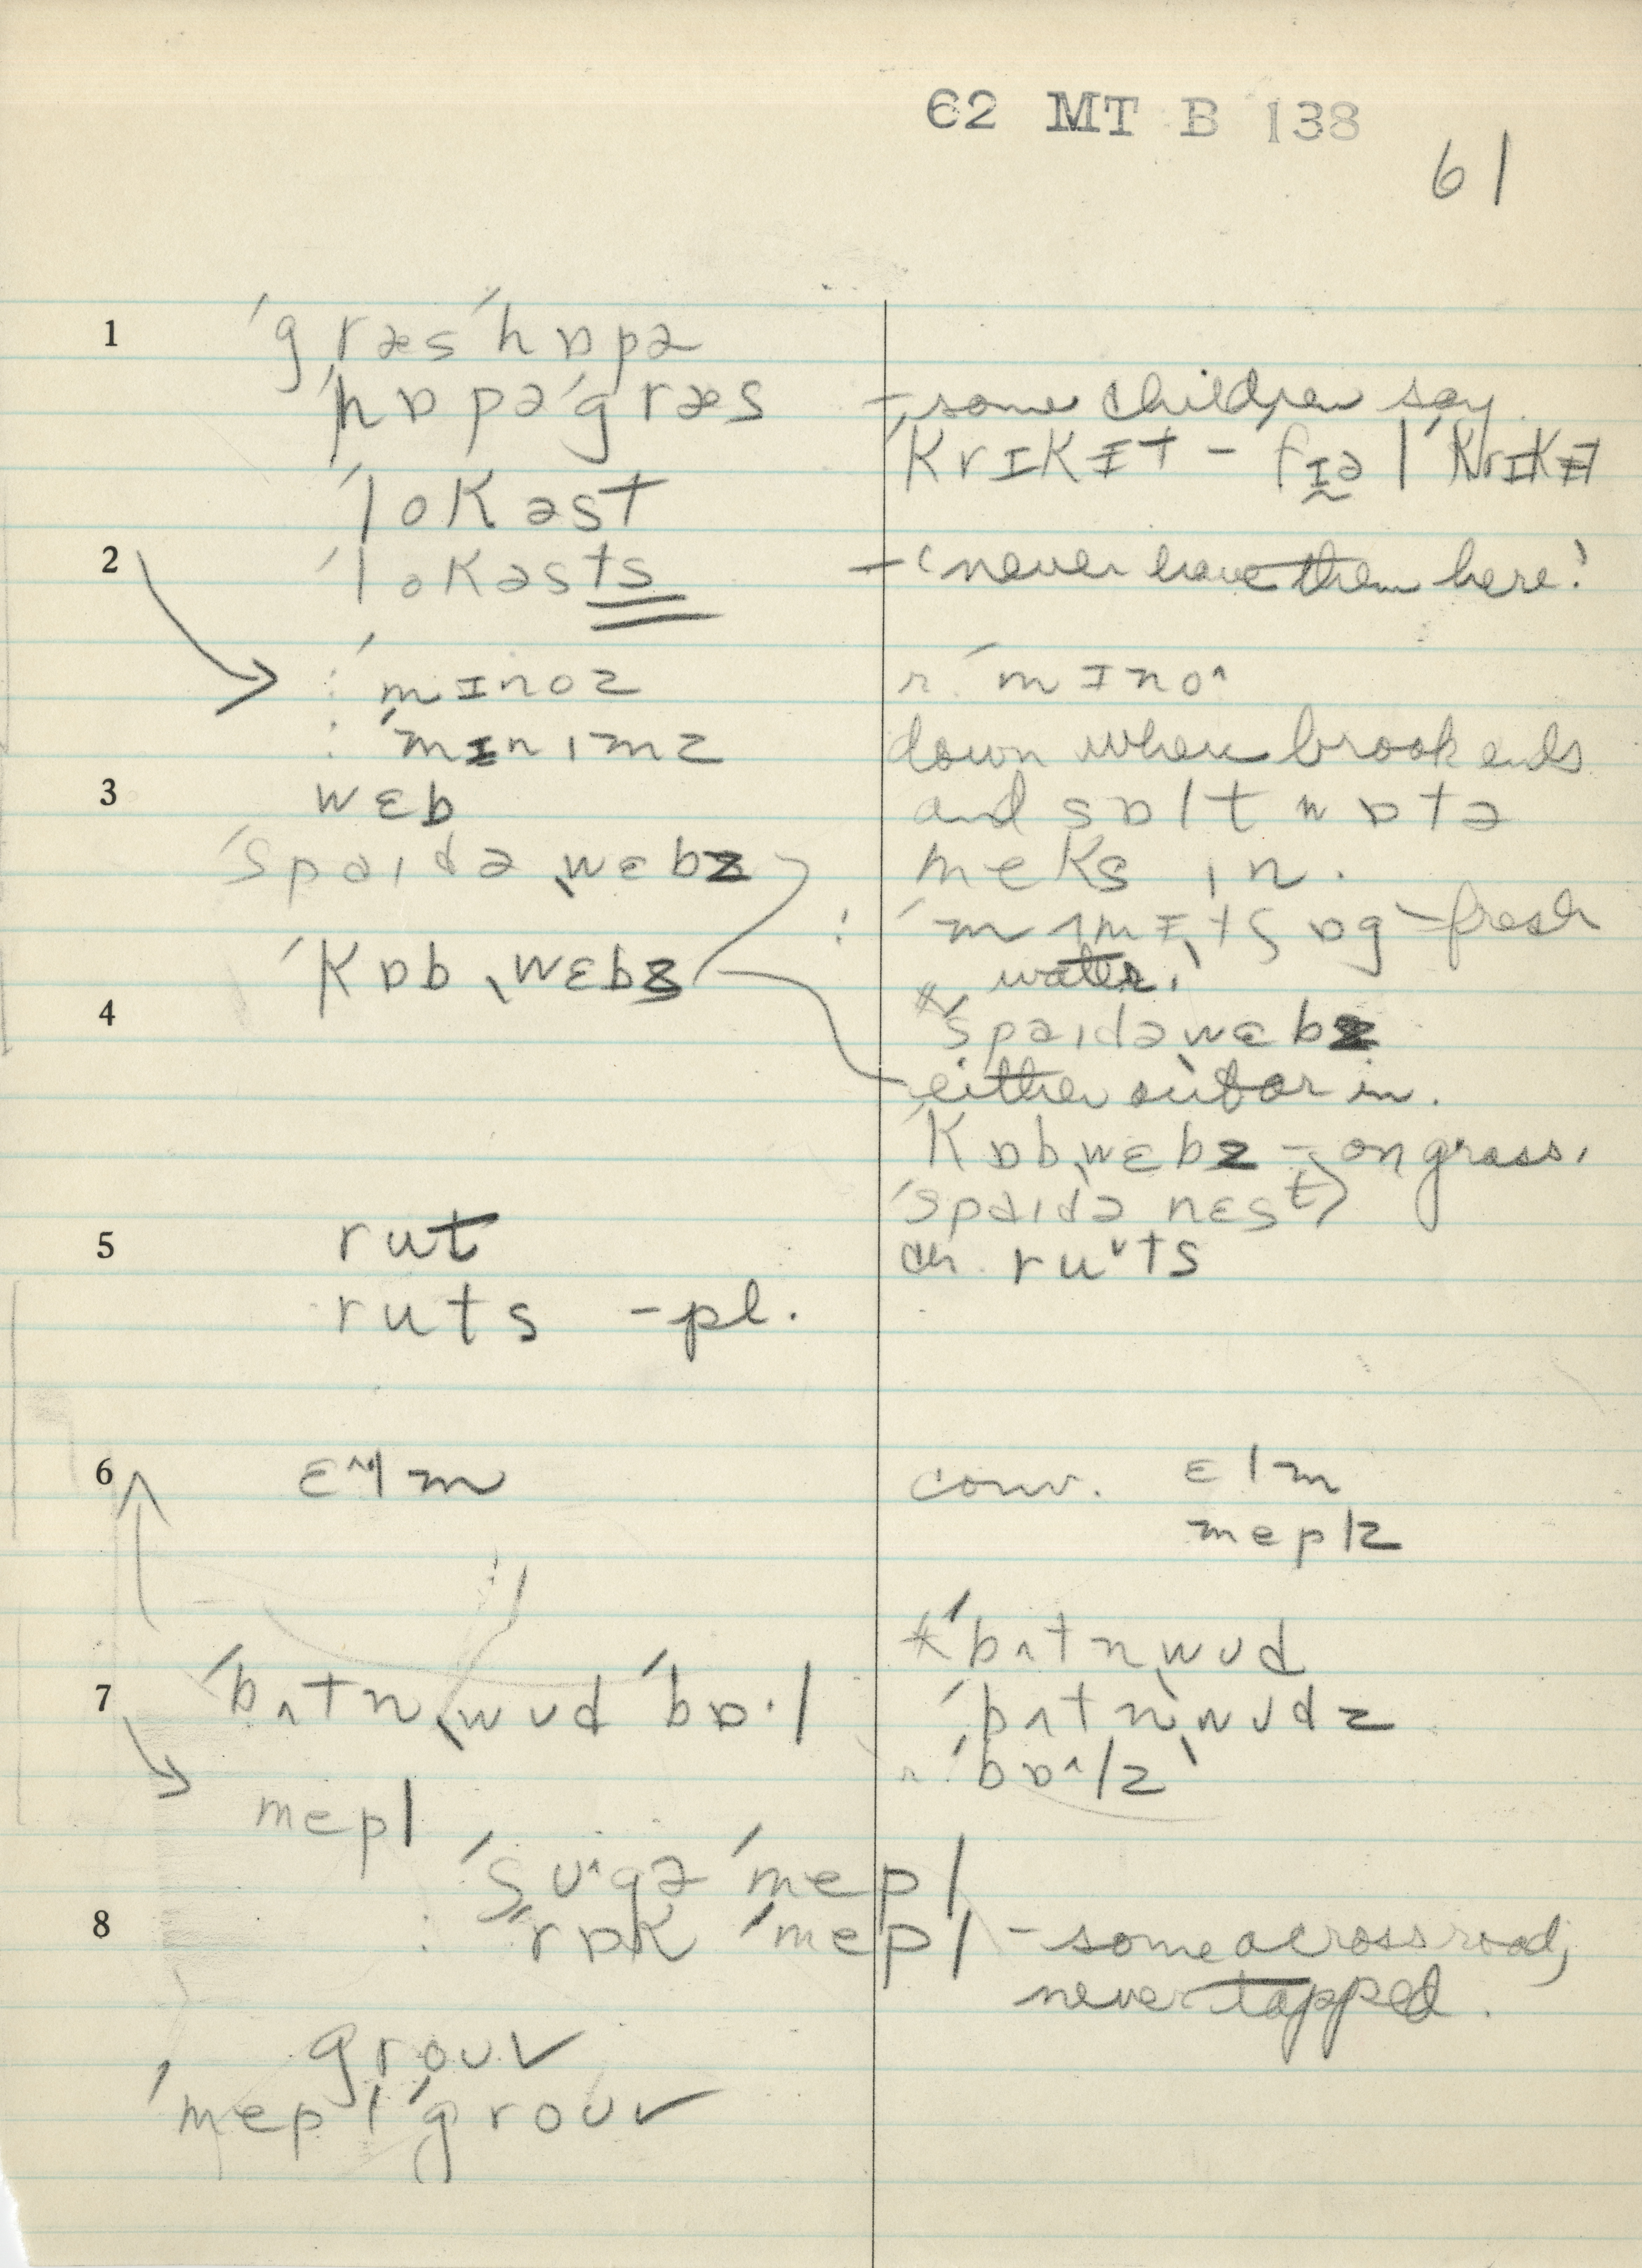 62 MT B 138
61
1 ˈgræsˈhɒpə
ˈhɒpəˈgræs – some children say
ˈkrɪkɪ̵t – fɪə l ˈkrɪkɪ̵t
ˈlokəst
2 ˈlokəsts – (never have them here!
: ˈmɪnoz r. ˈmɪno^
: ˈmɪnɪmz down when brook ends
3 wɛb and sɒlt wɒtə
ˈspaɪdəˌwɛbz meks ɪn.
: ˈmʌmɪ̵ˌtʃɒg – fresh
ˈkɒbˌwɛbz water.
4 * ˈspaɪdəˌwɛbz
either out or in.
ˈkɒbˌwɛbz – on grass,
ˈspaɪdə nɛst)
5 rut ru˅ts
ruts – pl.
6 ɛ^lm conv. ɛlm
meplz
* ˈbʌtnˌwʊd
7 ˈbʌtnˌwʊd ˈbɒ·l ˈbʌtnˌwʊdz
r. ˈbɒ^lz
mepl
ˈʃʊ^gə ˈmepl
8 : ˈrɒk ˈmepl – some across road,
never tapped.
grouv
ˈmepl ˈgrouv